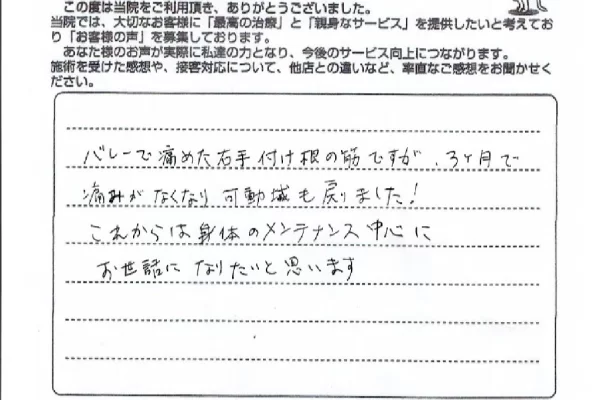 この度は当院をご利用頂き、ありがとうございました。
当院では、大切なお客様に「最高の治療」と「親身なサービス」を提供したいと考えてお
り「お客様の声」を募集しております。
あなた様のお声が実際に私達の力となり、今後のサービス向上につながります。
施術を受けた感想や、接客対応について、他店との違いなど、率直なご感想をお聞かせく
ださい。
バレーで痛めた右手付け根の筋ですが、3ヶ月で
痛みがなくなり可動域も戻りました!
これからは身体のメンテナンス中心に
お世話になりたいと思います